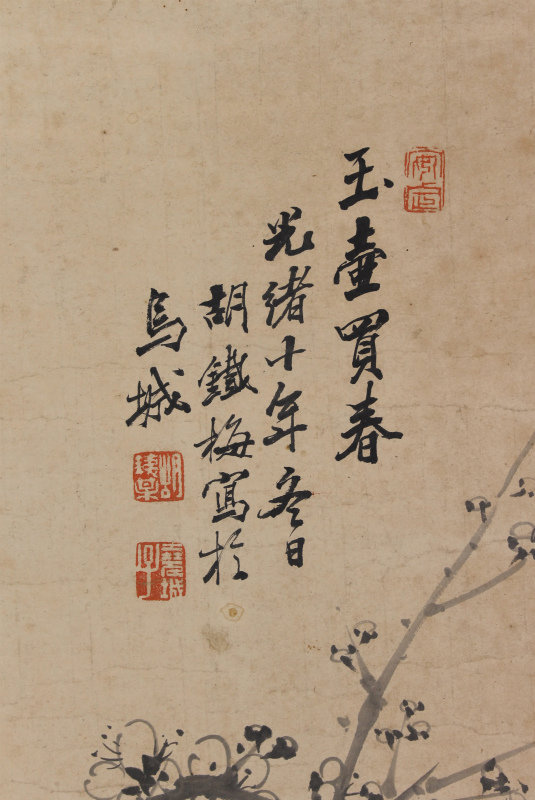 玉壺買春
光緒十年冬日
胡鐵梅寫於
烏城